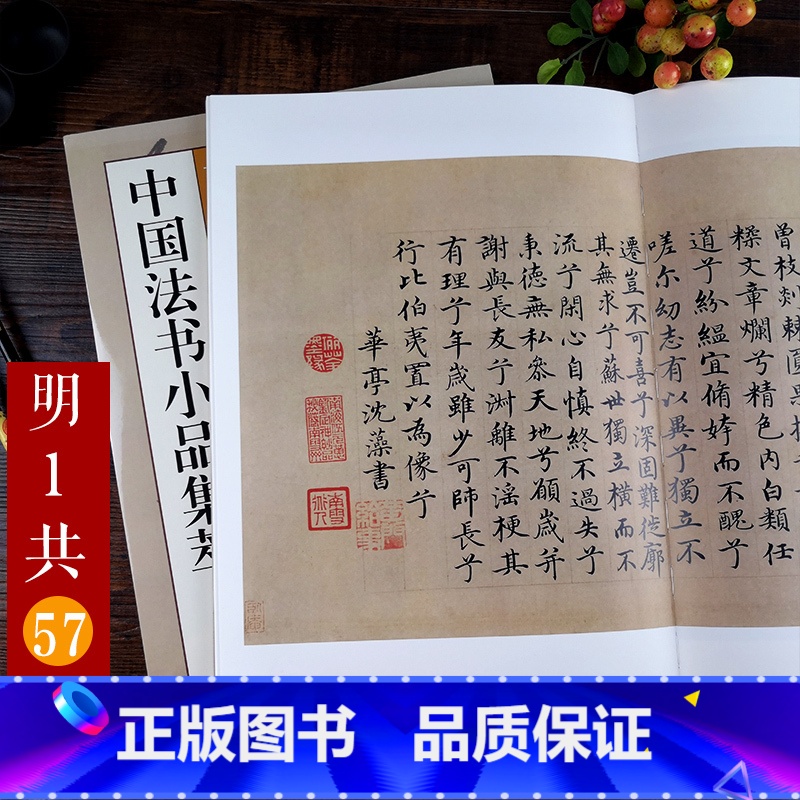 中国法书小品集萃
曾枝剡棘
糅文章爛兮精色内白類任
道兮紛緼宜脩姱而不醜兮
嗟尔幼志有以異兮獨立不
遷豈不可喜兮深固難徙廓
其無求兮蘇世獨立橫而不
流兮閑心自慎終不過失兮
秉德無私叅天地兮願歲并
謝與長友兮淑離不淫梗其
有理兮年歲雖少可師長兮
行比伯夷置以為像兮
華亭沈藻書
明1共57
正版图书 品质保证